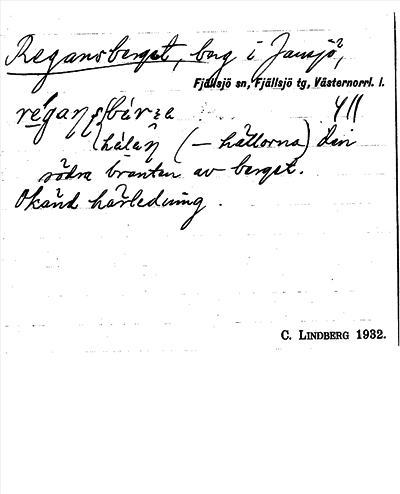 Regansberget, berg i Jansjö,
Fjällsjö sn, Fjällsjö tg, Västernorrl. l.
hálan (— hällorna) den
södra branten av berget.
Okänd härledning.
C. LINDBERG 1932.